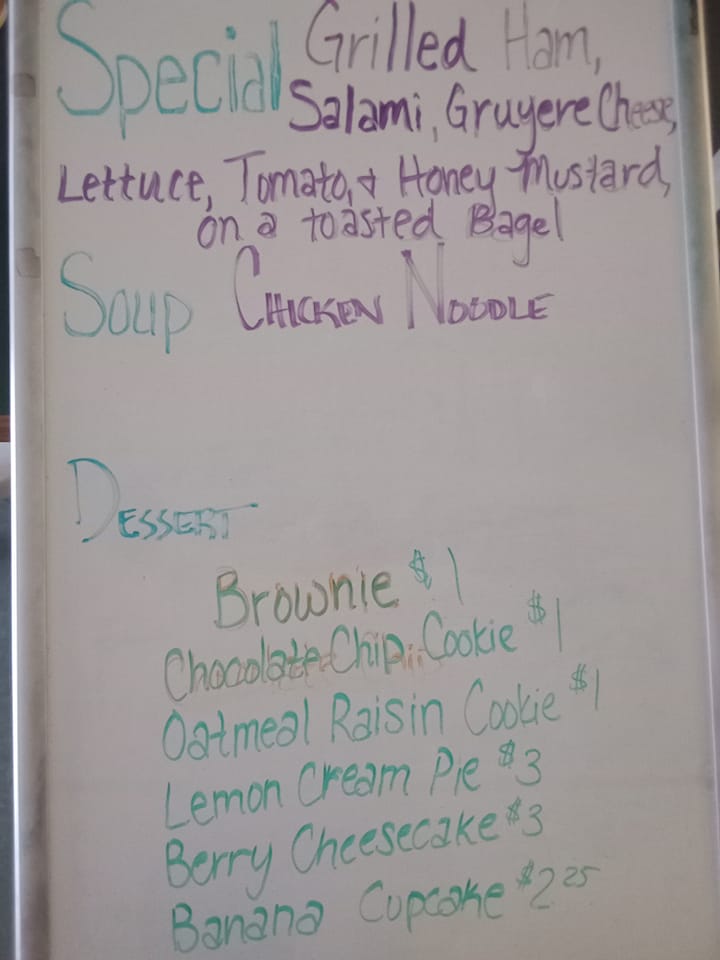 Special Grilled Ham,
Salami, Gruyere Cheese,
Lettuce, Tomato, & Honey Mustard,
on a toasted Bagel
Soup CHICKEN NOODLE
DESSERT
Brownie $1
Chocolate Chip Cookie $1
Oatmeal Raisin Cookie $1
Lemon Cream Pie $3
Berry Cheesecake $3
Banana Cupcake $2.25